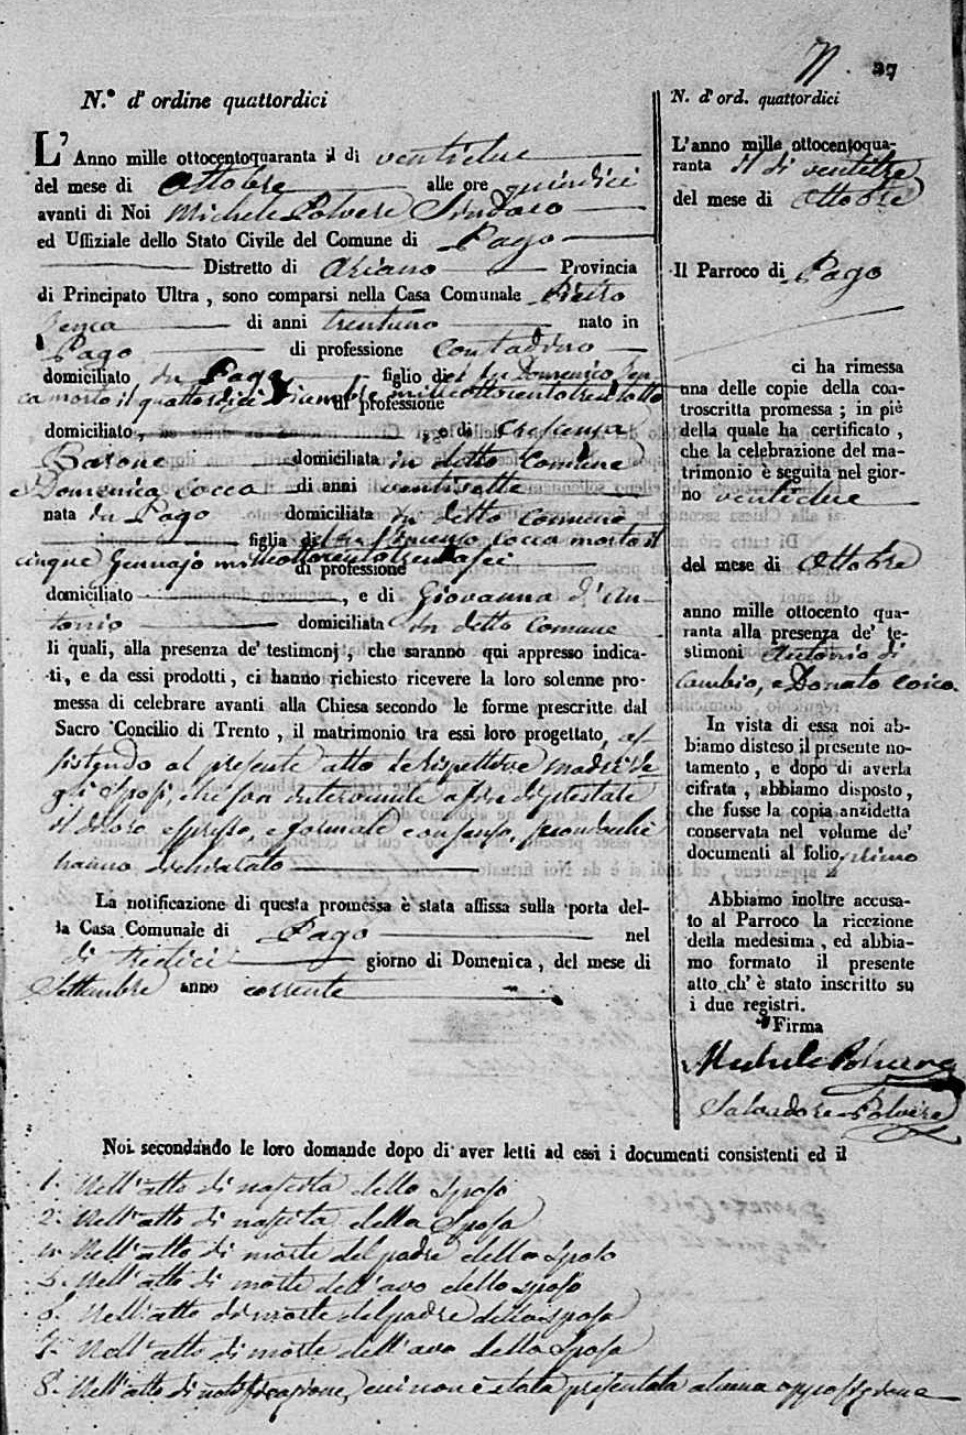 27
N.º d' ordine quattordici
L' Anno mille ottocentoquaranta il di ventidue
del mese di Ottobre alle ore quindici
avanti di Noi Michele Polvere Sindaco
ed Uffiziale dello Stato Civile del Comune di Pago
Distretto di Ariano Provincia
di Principato Ultra, sono comparsi nella Casa Comunale Pietro
Zenca di anni trentuno nato in
Pago di professione contadino
domiciliato in Pago figlio di del fu Domenico Zen-
ca morto il quattordici Dicembre mille ottocento trentotto
di professione
domiciliato, e di Crescenza
Barone domiciliata in detto Comune
e Domenica Cocca di anni ventisette
nata in Pago domiciliata in detto Comune
figlia di del fu Cocca morto il
cinque Gennajo mille ottocento trentasei
di professione
domiciliato, e di Giovanna d'An-
tonio domiciliata in detto Comune
li quali, alla presenza de' testimonj, che saranno qui appresso indica-
ti, e da essi prodotti, ci hanno richiesto ricevere la loro solenne pro-
messa di celebrare avanti alla Chiesa secondo le forme prescritte dal
Sacro Concilio di Trento, il matrimonio tra essi loro progettato, as-
sistendo al presente atto le rispettive madri de
gli Sposi, che son intervenute a fine di prestare
il di loro espresso, e formale consenso, secondochè
hanno dichiarato
La notificazione di questa promessa è stata affissa sulla porta del-
la Casa Comunale di Pago nel
di tredici giorno di Domenica, del mese di
Settembre anno corrente
N. d' ord. quattordici
L'anno mille ottocentoqua-
ranta il di ventitre
del mese di Ottobre
Il Parroco di Pago
ci ha rimessa
una delle copie della con-
troscritta promessa; in piè
della quale ha certificato,
che la celebrazione del ma-
trimonio è seguita nel gior-
no ventidue
del mese di Ottobre
anno mille ottocento qua-
ranta alla presenza de' te-
stimoni Antonio di
Cambio, e Donato Coico.
In vista di essa noi ab-
biamo disteso il presente no-
tamento, e dopo di averla
cifrata, abbiamo disposto,
che fusse la copia anzidetta
conservata nel volume de'
documenti al folio primo
Abbiamo inoltre accusa-
to al Parroco la ricezione
della medesima, ed abbia-
mo formato il presente
atto ch' è stato inscritto su
i due registri.
Firma
Michele Polvere
Salvadore Polvere
Noi secondando le loro domande dopo di aver letti ad essi i documenti consistenti ed il
1. Nell'atto di nascita dello Sposo
2. Nell'atto di nascita della Sposa
4. Nell'atto di morte del padre dello Sposo
5. Nell'atto di morte dell'avo dello sposo
6. Nell'atto di morte del padre della sposa
7. Nell'atto di morte dell'avo della Sposa
8. Nell'atto di notificazione, cui non è stata presentata alcuna opposizione